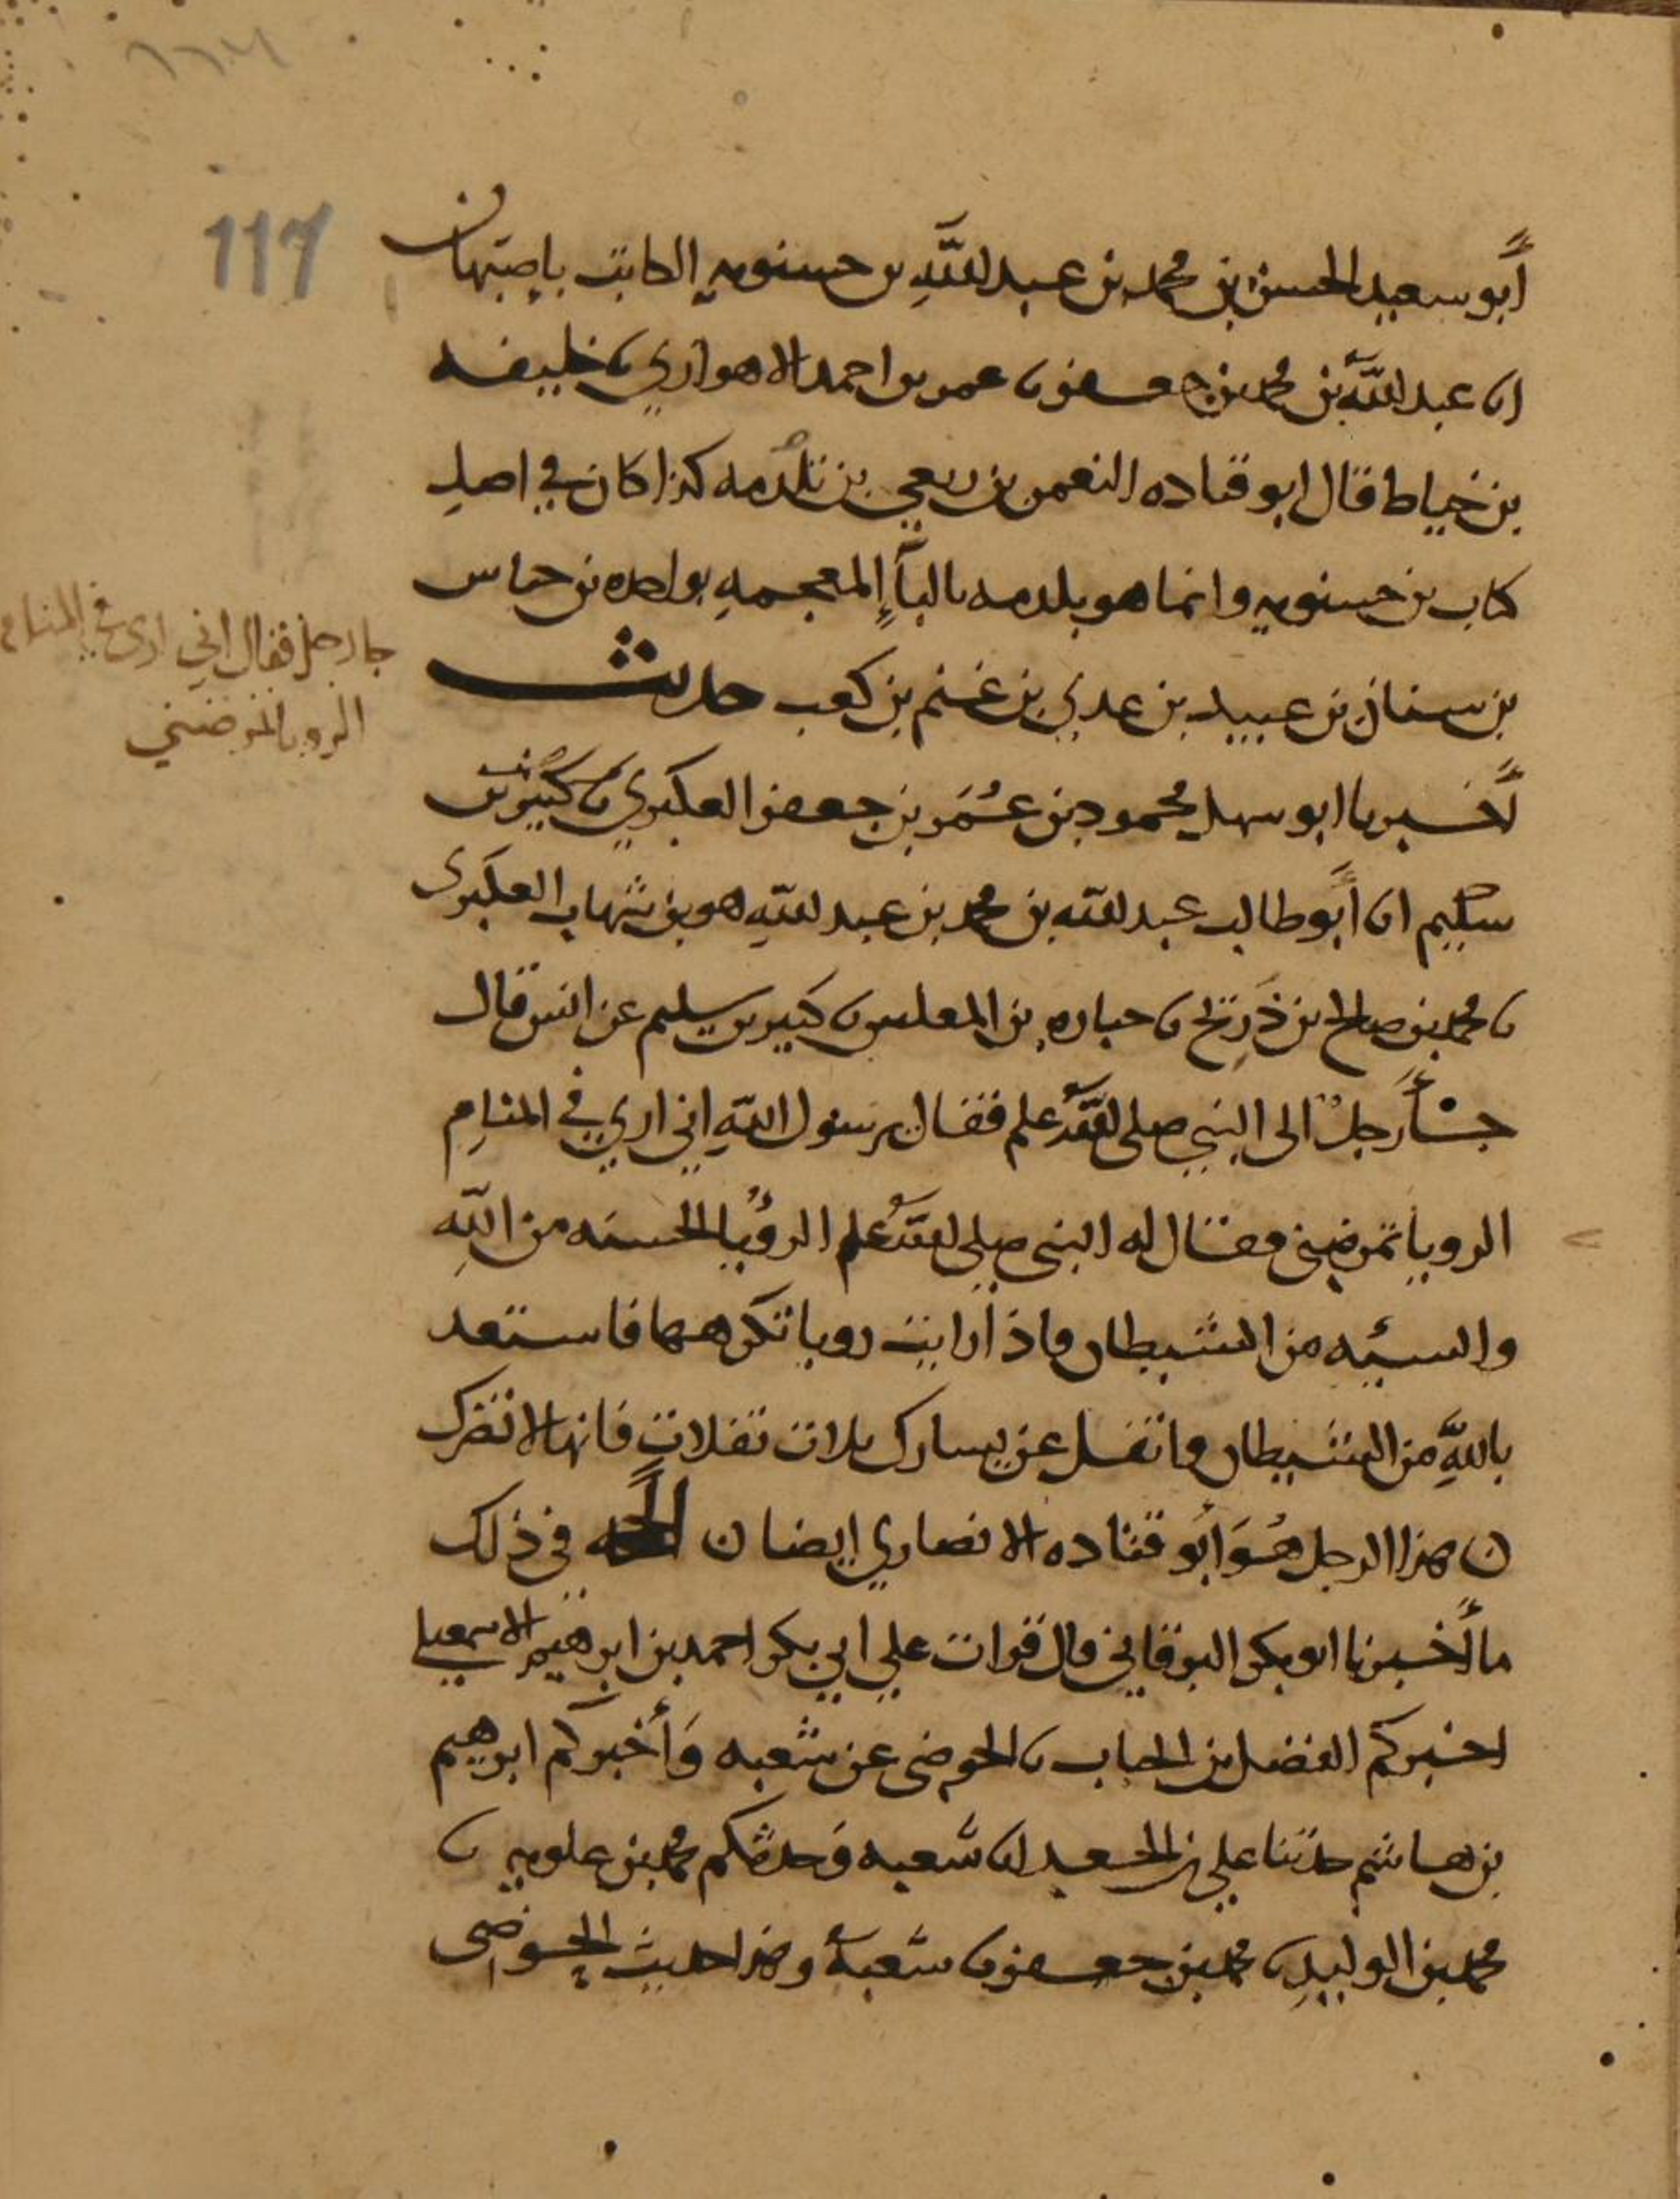 117
أبو سعيد الحسن بن محمد بن عبد الله بن حسنويه الكاتب باصبهان
انا عبد الله بن محمد بن جعفر نا عمر بن احمد الاهوازي نا خليفه
بن خياط قال ابو قتاده النعمن بن ربعي بن تلدمه كذا كان في اصل
كتاب بن حسنويه وانما هو بلدمه بالباء المعجمه بواحده بن خناس
بن سنان بن عبيد بن عدي بن غنم بن كعب حديث
أخبرنا ابو سهل محمود بن عمر بن جعفر العكبري نا كثير بن
سليم انا أبو طالب عبد الله بن محمد بن عبد الله هو بن شهاب العكبرى
نا محمد بن صالح بن ذريح نا جباره بن المغلس نا كثير بن سليم عن انس قال
جاء رجل الى النبي صلى الله علم فقال يرسول الله اني اري في المنام
الرويا تمرضني فقال له النبي صلى الله علم الرؤيا الحسنه من الله
والسيئه من الشيطان فاذا رايت رويا تكرهها فاستعد
بالله من الشيطان واتفل عن يسارك ثلاث تفلات فانها لا تضرك
ن هذا الرجل هو أبو قتاده الانصاري ايضا ن الحجه في ذلك
ما أخبرنا ابو بكر البرقاني قال قرات علي ابي بكر احمد بن ابرهيم الاسمعيلي
اخبركم الفضل بن الحباب نا الحوضى عن شعبه وأخبركم ابرهيم
بن هاشم حدثنا علي بن الجعد انا شعبه وحدثكم محمد بن علويه نا
محمد بن الوليد نا محمد بن جعفر نا شعبه وهذا حديث الحوضى
جا رجل فقال اني ارى في المنام
الرويا تمرضني